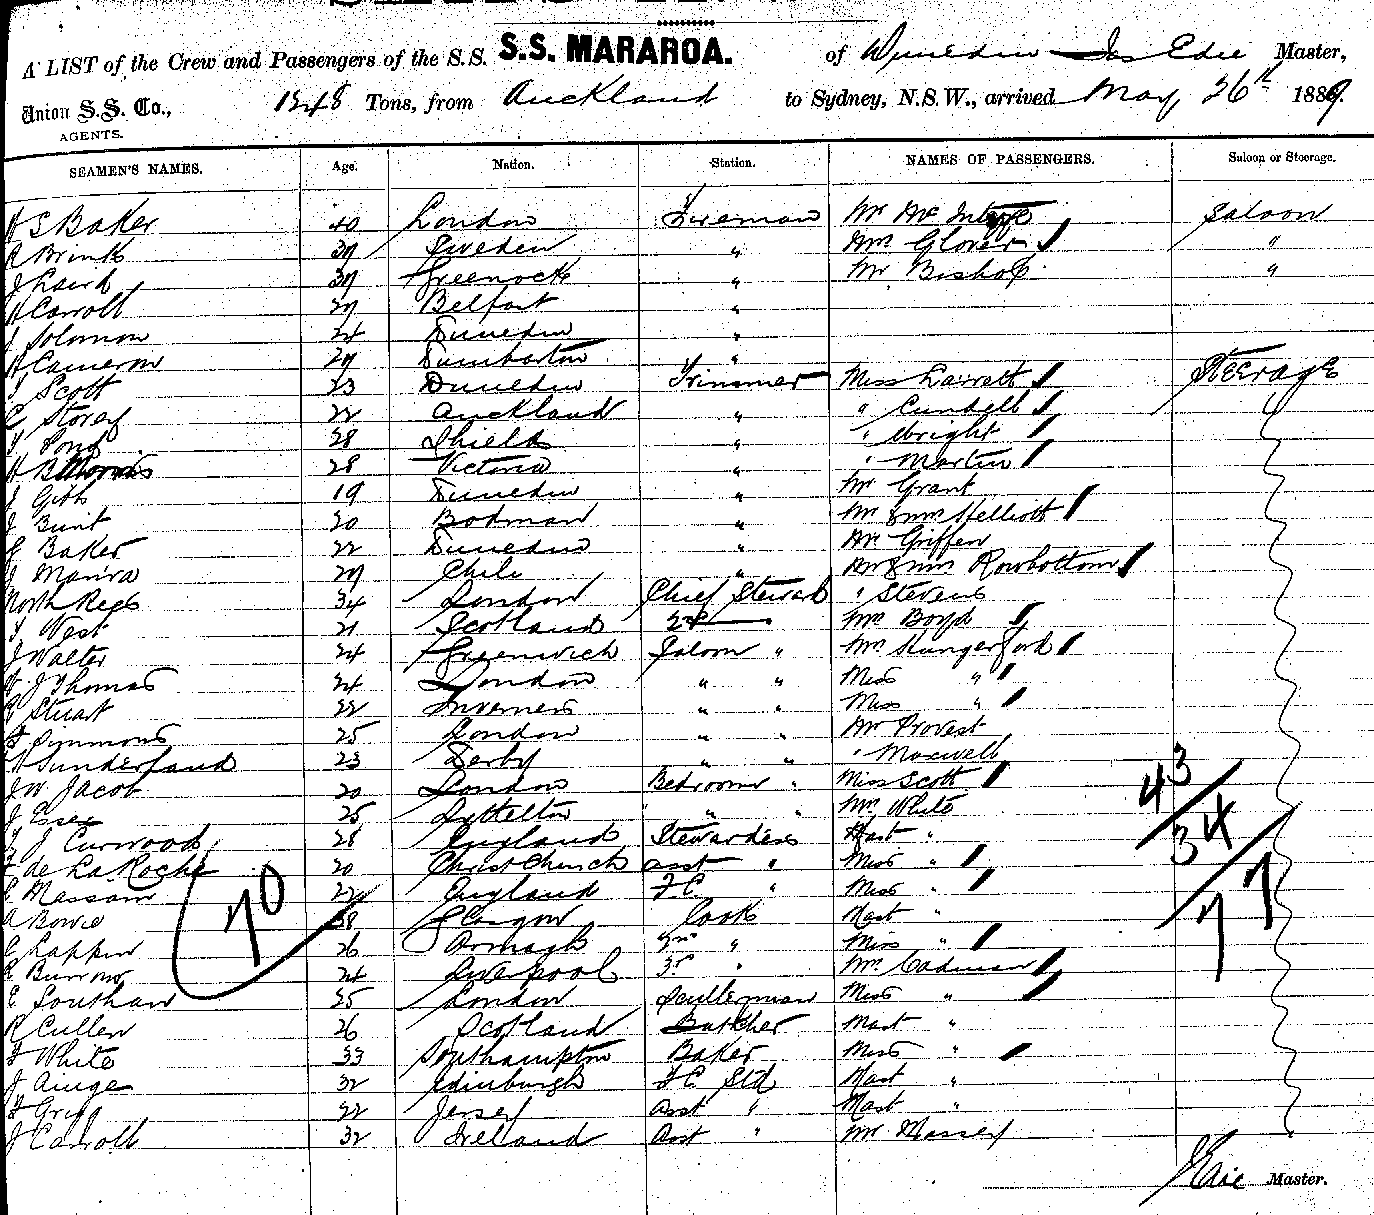 A LIST of the Crew and Passengers of the S.S. S.S. MARAROA. of Dunedin Jas Edie Master,
Union S.S. Co., 1248 Tons, from Auckland to Sydney, N.S.W., arrived May 26th 1889.
AGENTS.
SEAMEN'S NAMES. Age. Nation. Station. NAMES OF PASSENGERS. Saloon or Steerage.
H S Baker 40 London Fireman Mr McIntyre Saloon
R Brink 37 Sweden " Mrs Glover "
J Laird 37 Greenock " Mr Bishop "
H Carroll 27 Belfast "
J Solomon 24 Dunedin "
H Cameron 27 Dumbarton "
J Scott 23 Dunedin Trimmer Miss Larratt Steerage
C Storey 22 Auckland " " Cundell
Y Pond 28 Shields " " Wright
H B Morris 28 Victoria " " Martin
J Gibb 19 Dunedin " Mr Grant
J Bunt 20 Bodman " Mr & Mrs Helliott
G Baker 22 Dunedin " Mr Griffen
J Manira 29 Chili " Mr & Mrs Rowbottom
North Rees 34 London Chief Steward " Stevens
Y West 21 Scotland 2nd Mrs Boyd
J Walter 24 Greenwich Saloon " Mrs Hungerford
J Thomas 24 London " " Miss "
G Stuart 22 Inverness " " Miss "
F Simmons 25 London " " Mr Provest
H Sunderland 23 Derby " " " Maxwell
J W Jacob 20 London Bedroom " Miss Scott
J Essex 25 Lyttelton " " Mr White
Y J Curwood 28 England Stewardess Mast "
F de La Roche 20 Christchurch asst " Miss "
C Massam 22 England F.C. " Miss "
A Bowie 38 Glasgow Cook Mast "
C Lappin 26 Armagh 2nd " Miss "
R Burrow 24 Liverpool 3rd " Mrs Cadman
E Southan 25 London Scullerman Miss "
R Cullen 26 Scotland Butcher Mast "
F White 33 Southampton Baker Miss "
J Ainge 32 Edinburgh F.C. Std Mast "
F Grigg 22 Jersey Asst " Mast "
J Carroll 32 Ireland Asst " Mr Massey
43
34
77
70
J Edie Master.